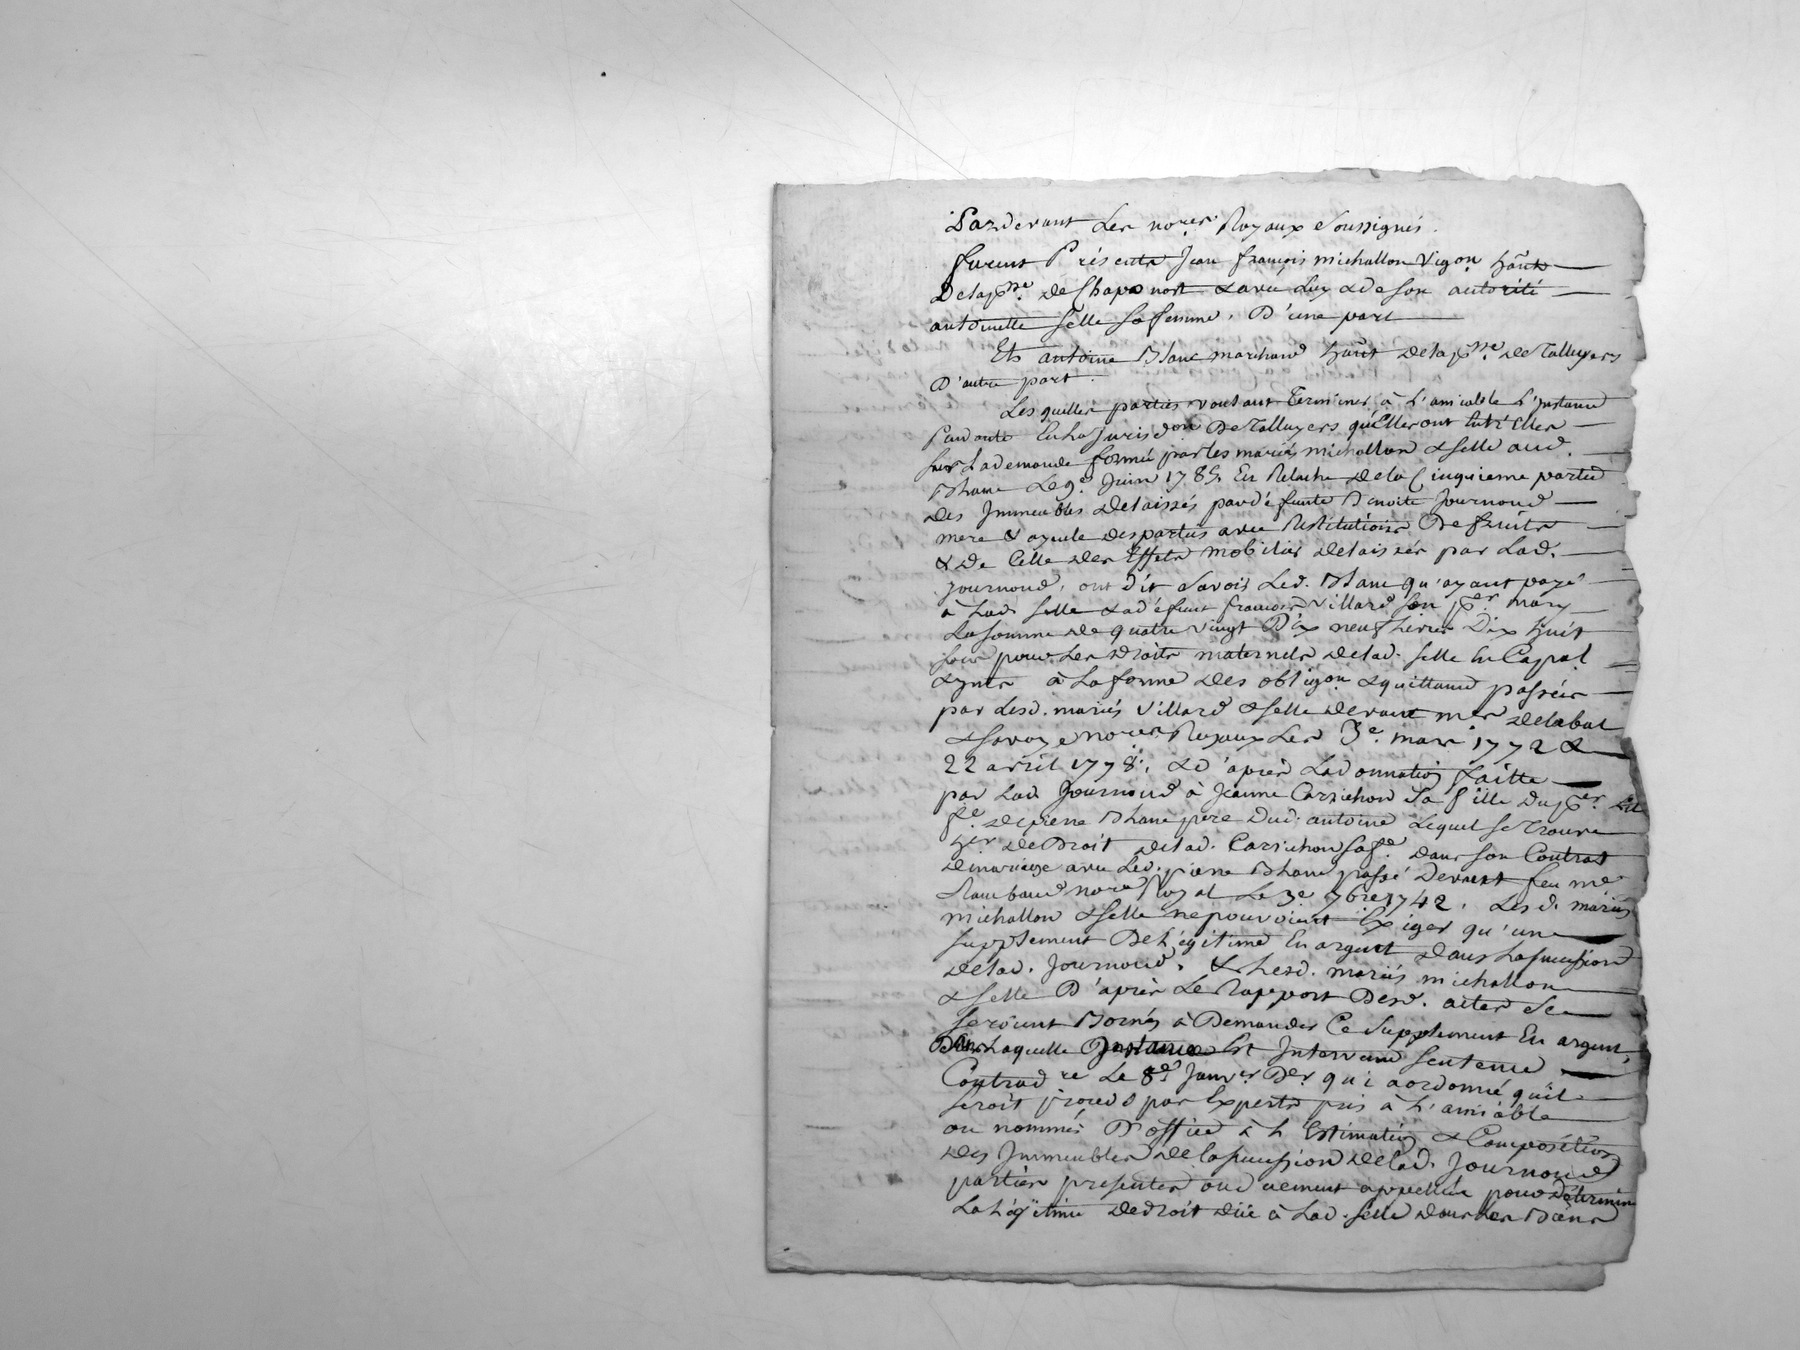 Pardevant Les no.res Royaux Soussignés.
furent Présents Jean françois michallon Vigon hãnt
Delap.sse de Chaponost & avec Luy & de son autorité
antoinette selle sa femme, D'une part
Et antoine Blanc marchand hãnt delap.sse de Talluyers
D'autre part.
Lesquelles parties voulant terminer à L'amiable L'Instance
Pendante En la Jurisd.on De Talluyers qu'Elles ont Entr'Elles
sur La demande formée par les mariés michallon & selle aud.
Blanc Le 9.e Juin 1785 En Relache de la Cinquieme partie
des Immeubles delaissés par défunte Benoite Journoud
mere & ayeule des parties avec Restitution De fruits
& de Celle des Effets mobiliers delaissés par Lad.
Journoud, ont Dit Savoir Led. Blanc qu'ayant payé
à Lad. selle & a défunt françois Villard son p.er mary
La somme de quatre vingt Dix neuf Livres Dix huit
sous pour Les Droits maternels de lad. selle En Capal
& ynts à La forme des obligon & quittance passées
par Lesd. mariés Villard & selle devant m.es delabat
& savoye no.res Royaux Les 3.e mars 1772 &
22 avril 1778, & d'après La donnation faitte
par Lad. Journoud à Jeanne Carrichon Sa fille Du p.er Lit
f.e de pierre Blanc pere Dud. antoine Lequel se Trouve
h.er de Droit de lad. Carrichon sa f.e Dans son Contrat
de mariage avec Led. pierre Blanc passé Devant feu m.e
Rambaud no.re Royal Le 3.e 7bre 1742. Lesd. mariés
michallon & selle ne pouvoient Exiger qu'un
supplement De Légitime En argent dans La succession
de lad. Journoud, & Lesd. mariés michallon
& selle D'après Le Rapport Desd. actes Se
seroient Bornés à Demander Ce Supplement En argent,
Dans Laquelle Instance Est Intervenu sentence
Contrad.re Le 8.e Janv.er D.er qui a ordonné qu'il
seroit procedé par Experts pris à L'amiable
ou nommés D'office à L'Estimation & Composition
des Immeubles de la succession de lad. Journoud
parties presentes ou duement appellées pour Déterminer
La Légitime de droit düe à Lad. selle dans Les Biens